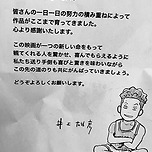 皆さんの一日一日の努力の積み重ねによって
作品がここまで育ってきました。
心より感謝いたします。
この映画が一つの新しい命をもって
観てくれる人を驚かせ、喜んでもらえるように
私たちも送り手側も喜びと驚きを味わいながら
この先の道のりも共にがんばっていきましょう。
どうぞよろしくお願いします。
井上雄彦